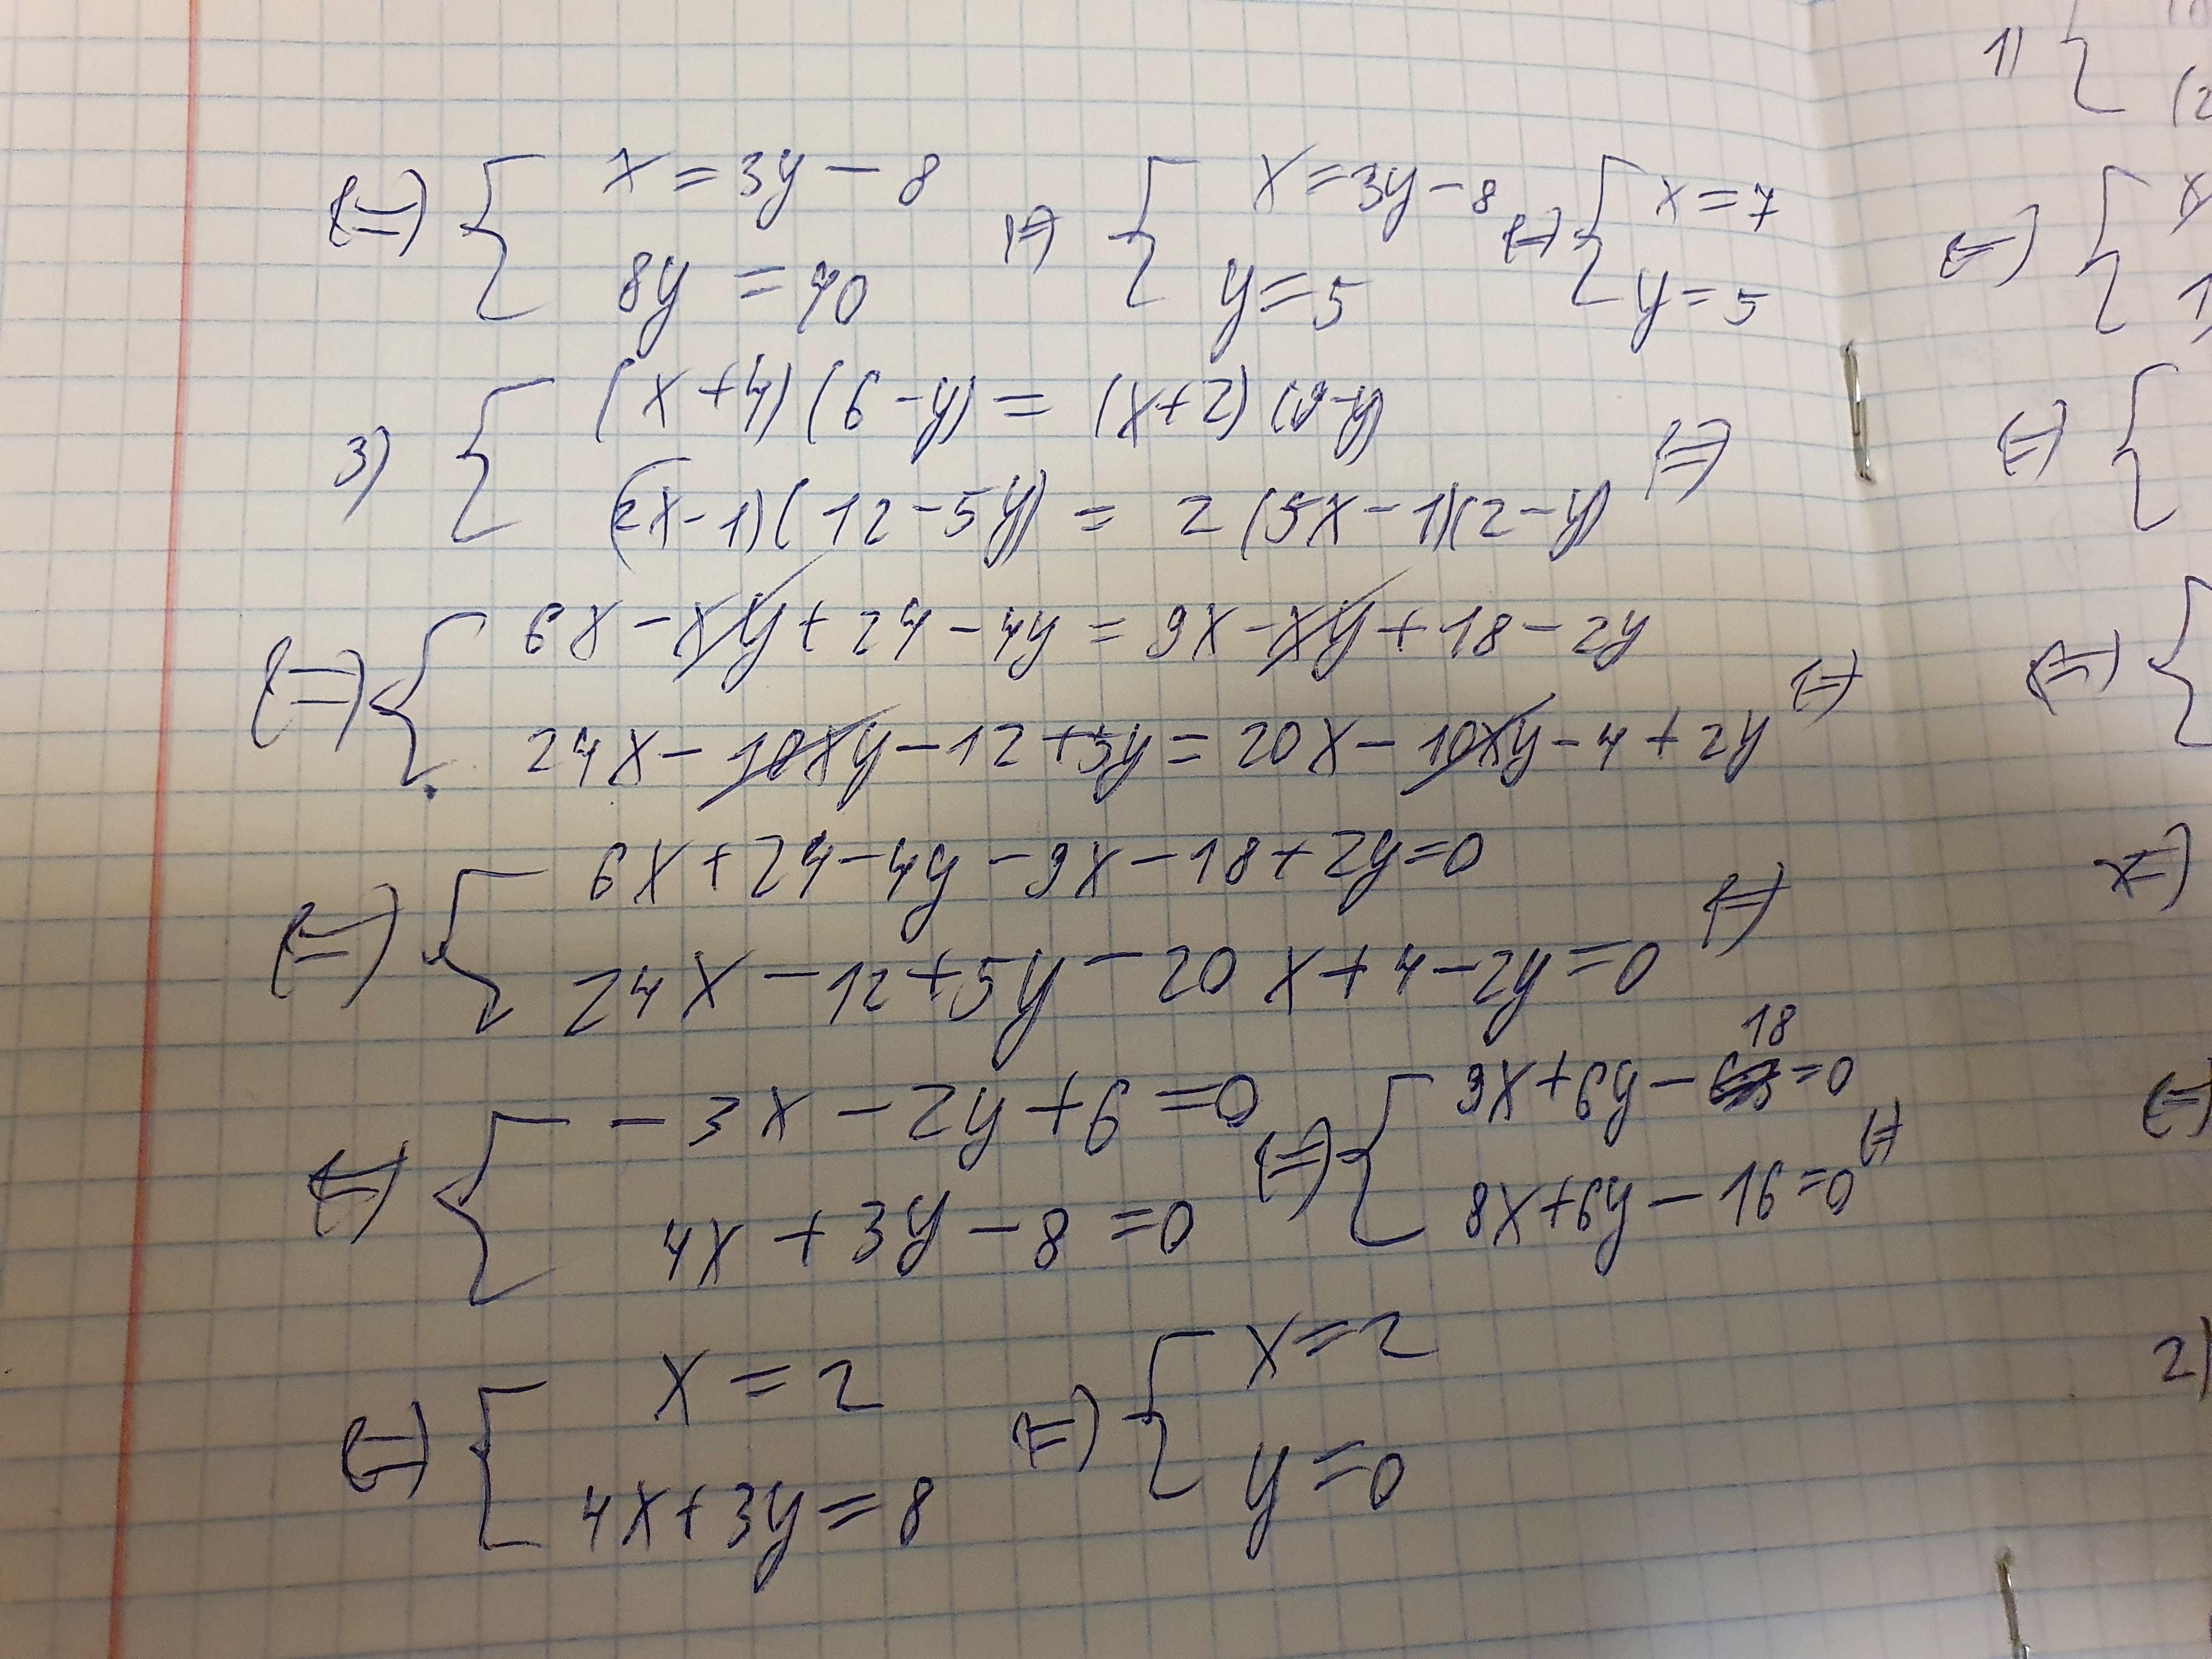 ⇔ { x = 3y - 8 ⇔ { x = 3y - 8 ⇔ { x = 7
8y = 40 y = 5 y = 5
3) { (x + 4)(6 - y) = (x + 2)(9 - y)
(2x - 1)(12 - 5y) = 2(5x - 1)(2 - y) ⇔
⇔ { 6x - xy + 24 - 4y = 9x - xy + 18 - 2y
24x - 10xy - 12 + 5y = 20x - 10xy - 4 + 2y ⇔
⇔ { 6x + 24 - 4y - 9x - 18 + 2y = 0
24x - 12 + 5y - 20x + 4 - 2y = 0 ⇔
⇔ { -3x - 2y + 6 = 0 ⇔ { 9x + 6y - 18 = 0
4x + 3y - 8 = 0 8x + 6y - 16 = 0 ⇔
⇔ { x = 2 ⇔ { x = 2
4x + 3y = 8 y = 0
1) {
(2
⇔ { x
1
⇔ {
⇔ {
⇔
⇔
2)